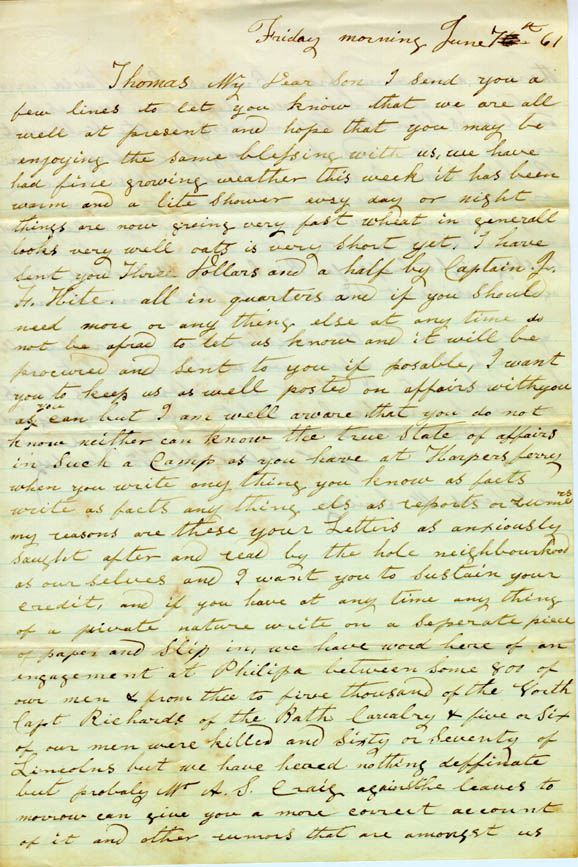 Friday morning June 7th 61
Thomas My Dear Son I send you a
few lines to let you know that we are all
well at present and hope that you may be
enjoying the same blessing with us, we have
had fine growing weather this week it has been
warm and a lite shower evry day or night
things are now groing very fast wheat in generall
looks very well oats is very short yet, I have
sent you Three Dollars and a half by Captain J.
H. Hite. all in quarters and if you should
need more or any thing else at any time do
not be afrad to let us know and it will be
procured and sent to you if posable, I want
you to keep us as well posted on affairs with you
as you can but I am well aware that you do not
know neither can know the true state of affairs
in such a Camp as you have at Harpers ferry
when you write any thing you know as facts
write as facts any thing els as reports or rumers
my reasons are these your Letters as anxiously
saught after and read by the hole neighbourhood
as our selves and I want you to sustain your
credit, and if you have at any time any thing
of a private nature write on a seperate piece
of paper and slip in, we have word here of an
engagement at Philipa between some 800 of
our men & from thee to five thousand of the North
Capt Richards of the Bath Cavalry & five or six
of our men were killed and sixty or seventy of
Lincolns but we have hered nothing deffinate
but probaly Mr A. S. Craig againsthe leaves to
morrow can give you a more correct account
of it and other rumors that are amongst us